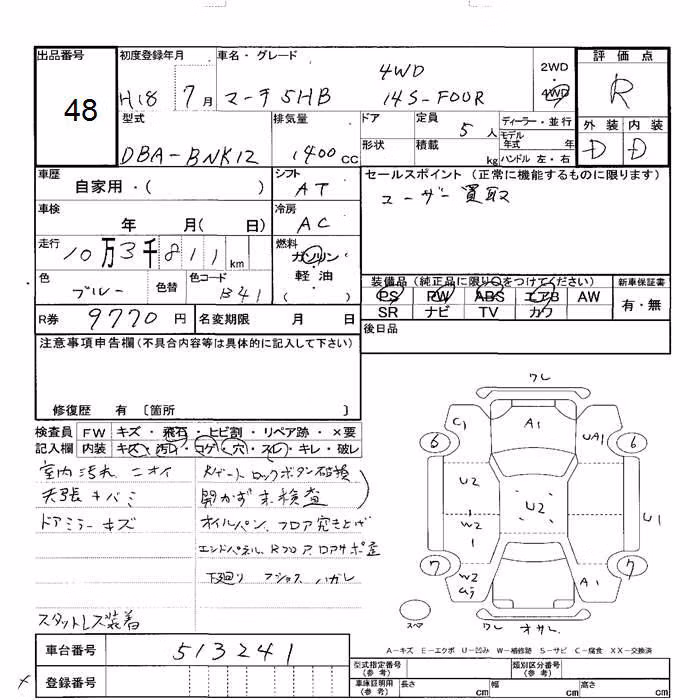 出品番号
48
初度登録年月
H18 7月
車名・グレード
マーチ 5HB
4WD
14S-FOUR
2WD
・
4WD
評価点
R
型式
DBA-BNK12
排気量
1400cc
ドア
形状
定員
5人
積載
kg
ディーラー・並行
モデル
年式 年
ハンドル 左・右
外装 内装
D D
車歴
自家用・( )
シフト
AT
セールスポイント (正常に機能するものに限ります)
ユーザー買取
車検
年 月( 日)
冷房
AC
走行
10万3千811km
燃料
ガソリン
軽・油
( )
色
ブルー
色替
色コード
B41
装備品 (純正品に限り〇をつけてください)
PS PW ABS エアB AW
SR ナビ TV カワ
新車保証書
有・無
R券 9770円
名変期限 月 日
後日品
注意事項申告欄(不具合内容等は具体的に記入して下さい)
修復歴 有 〔箇所 〕
検査員 FW キズ・飛石・ヒビ割・リペア跡・×要
記入欄 内装 キズ・汚レ・コゲ・穴・スレ・キレ・破レ
室内汚れ ニオイ
天張キバミ
ドアミラーキズ
スタットレス装着
Rゲートロックボタン破損
開かず未検査
オイルパン、フロア突き上げ
下廻り
ハガレ
ワレ
C1
A1
UA1
6
6
U2
U2
W2
1
U1
7
7
W2
A1
スペア
ワレ
オサレ
A-キズ E-エクボ U-凹み W-補修跡 S-サビ C-腐食 XX-交換済
車台番号
513241
登録番号
型式指定番号
(参考)
類別区分番号
(参考)
車庫証明用
(参考)
長さ cm
幅 cm
高さ cm